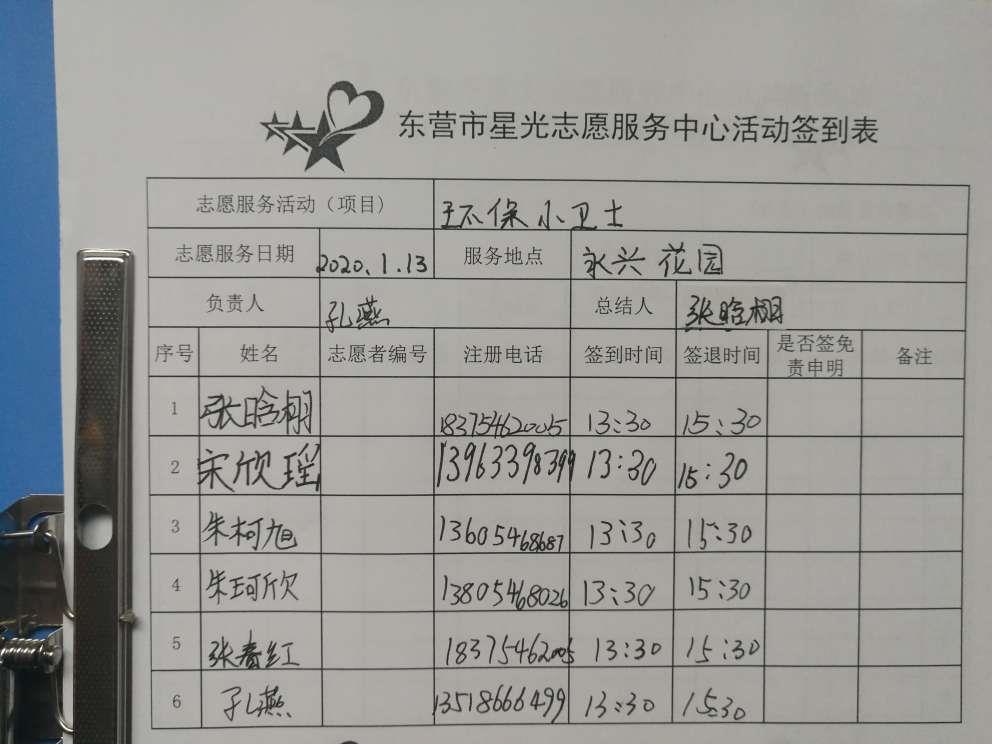 东营市星光志愿服务中心活动签到表
志愿服务活动（项目） 环保小卫士
志愿服务日期 2020.1.13 服务地点 永兴花园
负责人 孔燕 总结人 张晗栩
序号 姓名 志愿者编号 注册电话 签到时间 签退时间 是否签免责申明 备注
1 张晗栩 18375462005 13:30 15:30
2 宋欣瑶 13963398399 13:30 15:30
3 朱柯旭 13605468687 13:30 15:30
4 朱珂欣 13805468026 13:30 15:30
5 张春红 18375462005 13:30 15:30
6 孔燕 13518666499 13:30 15:30